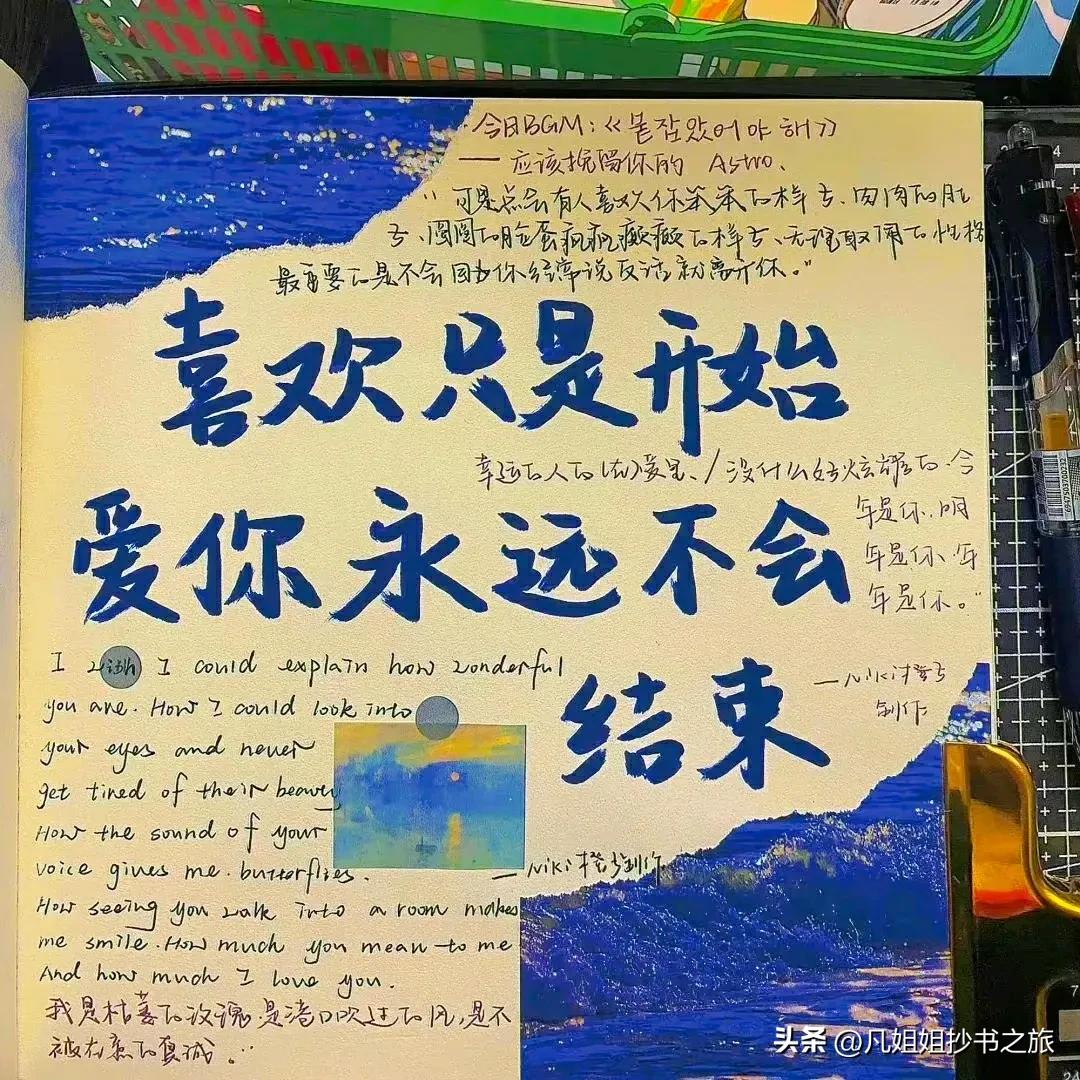 今日BGM:《붙잡았어야 해》
——应该挽留你的 Astro.
"可是总会有人喜欢你笨笨的样子、肉肉的肚
子、圆圆的脸蛋疯疯癫癫的样子、无理取闹的性格
最重要的是不会因为你经常说反话就离开你。"
喜欢只是开始
幸运的人的(有)爱是、/没什么好炫耀的·今
年是你、明
年是你·年
年是你。"
爱你永远不会
结束
—Niki橙子
创作
I wish I could explain how wonderful
you are. How I could look into
your eyes and never
get tired of their beauty
How the sound of your
voice gives me butterflies.
—Niki橙子创作
How seeing you walk into a room makes
me smile. How much you mean to me
And how much I love you.
我是枯萎的玫瑰,是港口吹过的风,是不
被在意的真诚。"
头条 @凡姐姐抄书之旅